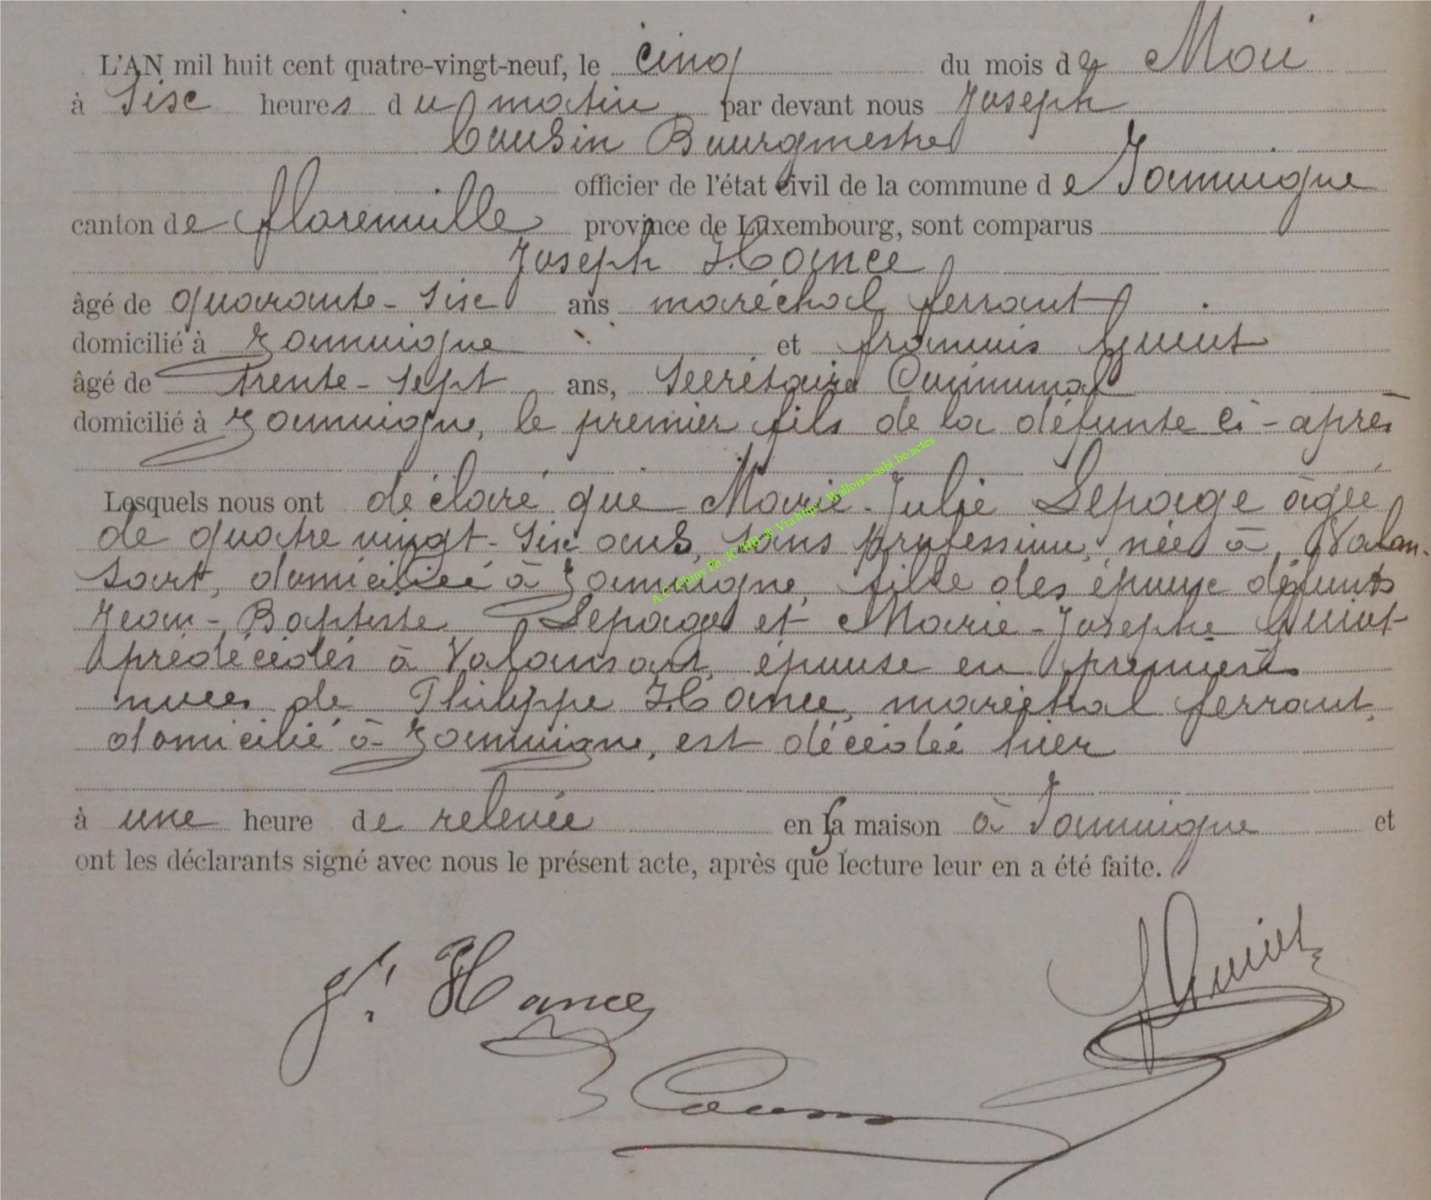 L'AN mil huit cent quatre-vingt-neuf, le cinq du mois de Mai
à Six heures du matin par devant nous Joseph
Cousin Bourgmestre
officier de l'état civil de la commune de Jamoigne
canton de florenville province de Luxembourg, sont comparus
Joseph Hance
âgé de quarante-six ans maréchal ferrant
domicilié à Jamoigne et françois Guiot
âgé de trente-sept ans, Secrétaire Communal
domicilié à Jamoigne, le premier fils de la défunte ci-après
Lesquels nous ont déclaré que Marie-Julie Lepage âgée
de quatre vingt-six ans, sans profession, née à Valan-
sart, domiciliée à Jamoigne, fille des époux défunts
Jean-Baptiste Lepage et Marie-Josephe Guiot
prédécédés à Valansart, épouse en premières
noces de Philippe Hance, maréchal ferrant,
domicilié à Jamoigne, est décédée hier
à une heure de relevée en sa maison à Jamoigne et
ont les déclarants signé avec nous le présent acte, après que lecture leur en a été faite.
Jh. Hance
Guiot
Cousin